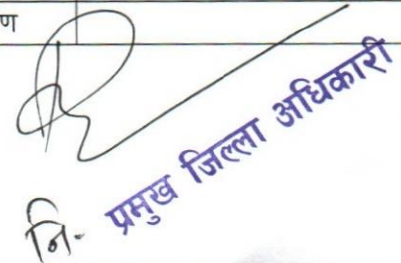 ण
नि. प्रमुख जिल्ला अधिकारी